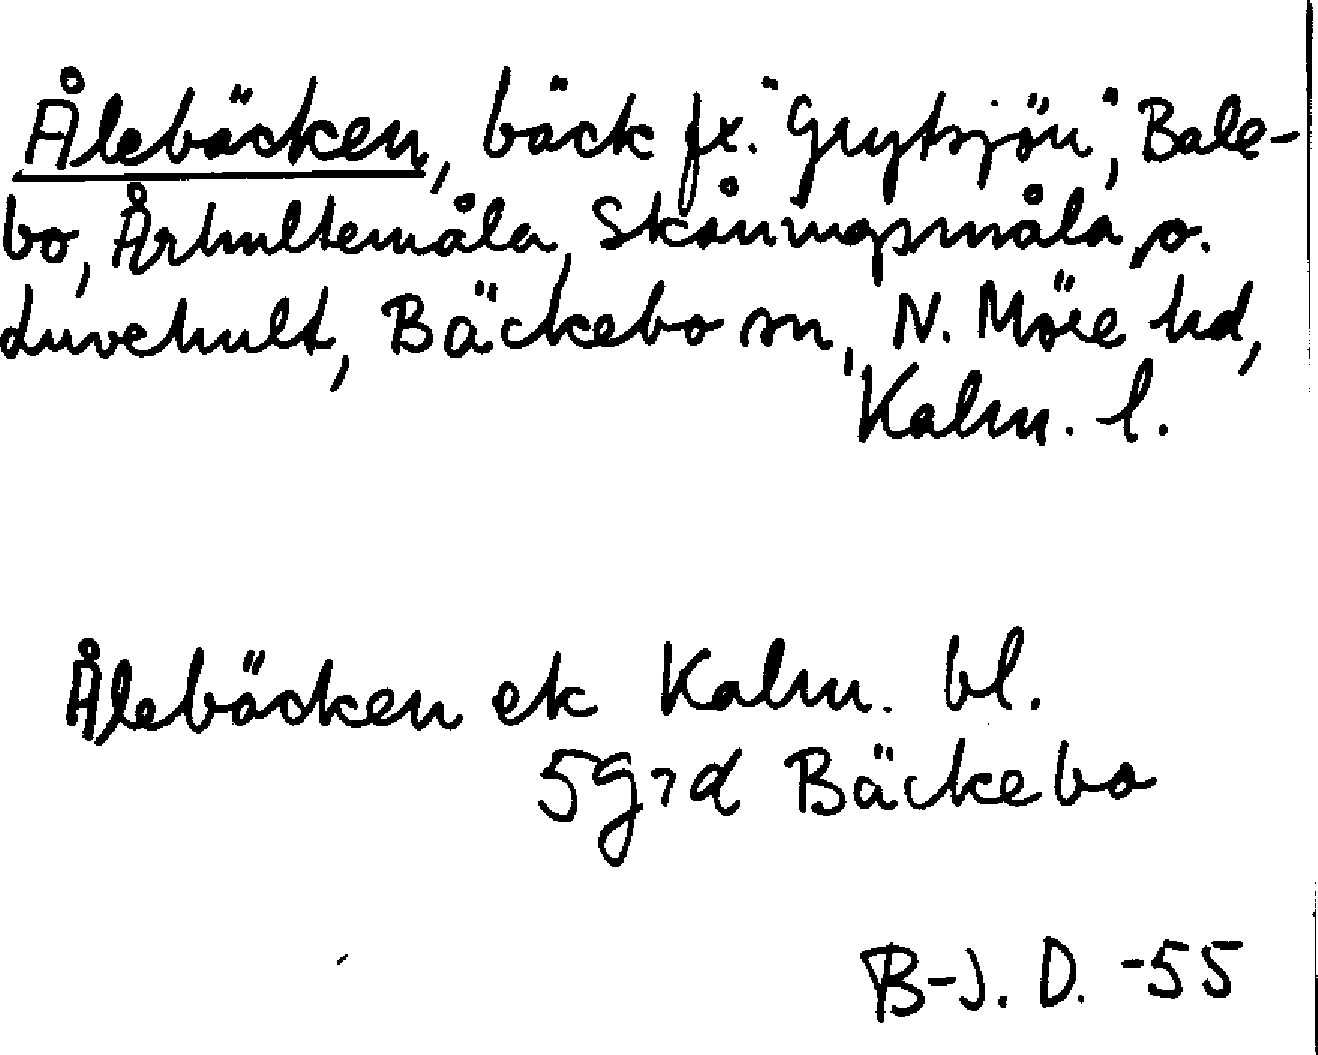 Ålebäcken, bäck fr. "Grytsjön", Bale-
bo, Århultemåla, Skåningsmåla, o.
Luvehult, Bäckebo sn, N. Möre hd,
Kalm. l.
Ålebäcken ek Kalm. bl.
5g7d Bäckebo
B-J. D. -55